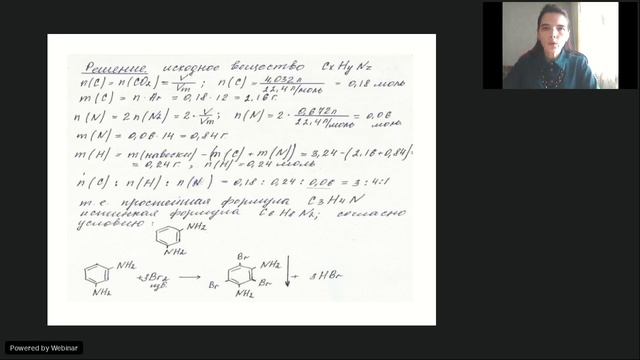 Решение: исходное вещество CxHyNz
n(C) = n(CO2) = V/Vm ; n(C) = 4,032 л / 22,4 л/моль = 0,18 моль
m(C) = n · Ar = 0,18 · 12 = 2,16 г.
n(N) = 2n(N2) = 2 · V/Vm ; n(N) = 2 · 0,672 л / 22,4 л/моль = 0,06 моль
m(N) = 0,06 · 14 = 0,84 г
m(H) = m(навески) – (m(C) + m(N)) = 3,24 – (2,16 + 0,84) =
= 0,24 г ; n(H) = 0,24 моль
n(C) : n(H) : n(N) = 0,18 : 0,24 : 0,06 = 3 : 4 : 1
т.е. простейшая формула C3H4N
истинная формула C6H8N2; согласно
условию:
NH2
NH2
NH2 + 3Br2 → Br NH2 Br Br NH2 ↓ + 3HBr
NH2
Powered by Webinar